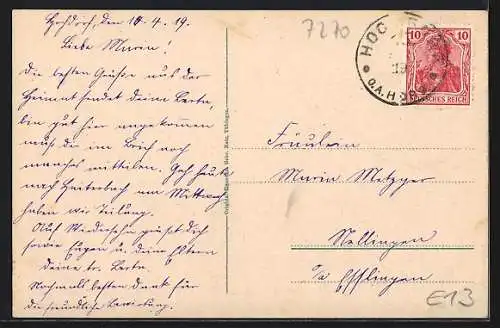 Hochdorf, den 10.4.19.
Liebe Maria!
Die besten Grüße aus der
Heimat sendet deine Berta,
bin gut hier angekommen
muß dir im Brief noch
manches mitteilen. Geh heute
nach Haiterbach am Mittwoch
haben wir Teilung.
Auf Wiedersehn grüßt Dich
sowie Eugen u. deine Eltern
deine tr. Berta.
Nochmals besten Dank für
die freundliche
7270
HOC
O.A.H
10 10
DEUTSCHES REICH
Fräulein
Maria Metzger
Nellingen
b/a Esslingen
E13